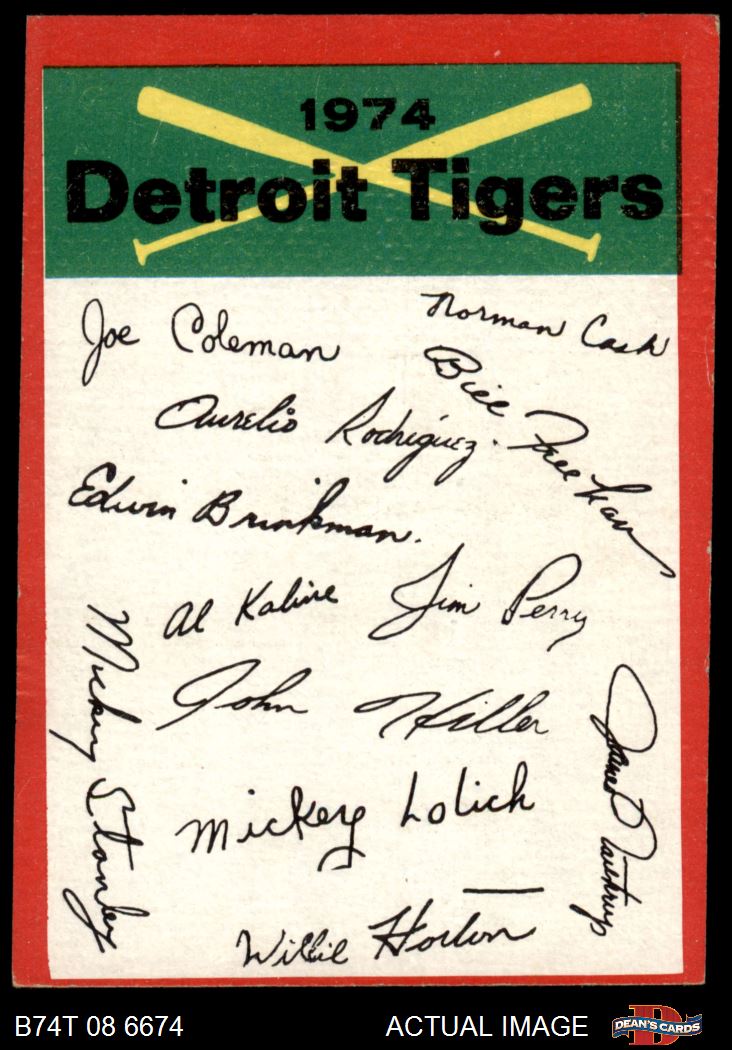 1974
Detroit Tigers
Joe Coleman
Norman Cash
Bill Freehan
Aurelio Rodriguez.
Edwin Brinkman.
Al Kaline
Jim Perry
Mickey Stanley
John Hiller
James Northrup
Mickey Lolich
Willie Horton
B74T 08 6674
ACTUAL IMAGE
D
DEAN'S CARDS